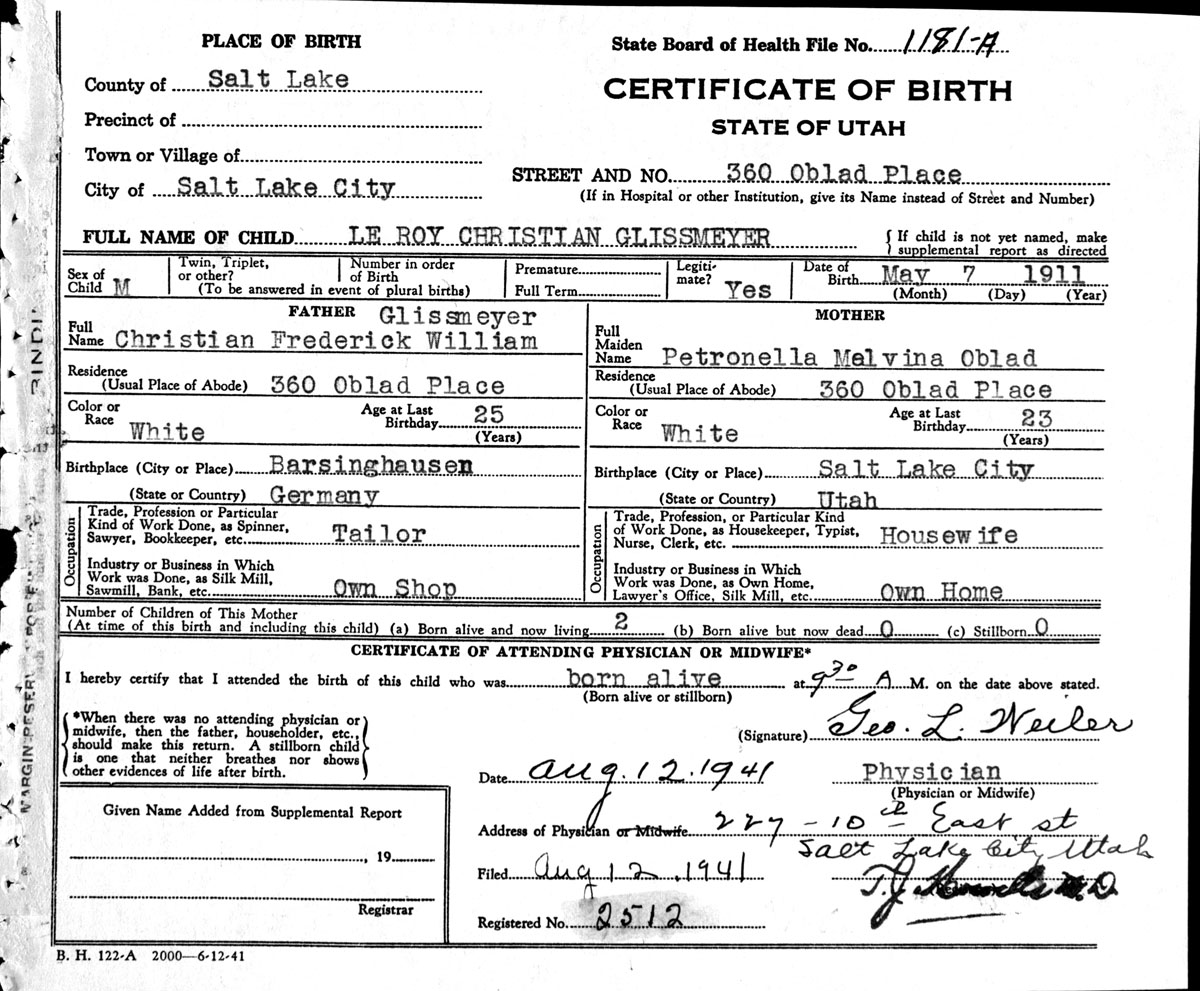 PLACE OF BIRTH
State Board of Health File No. 1181-A
County of Salt Lake
CERTIFICATE OF BIRTH
Precinct of
STATE OF UTAH
Town or Village of
STREET AND NO. 360 Oblad Place
City of Salt Lake City
(If in Hospital or other Institution, give its Name instead of Street and Number)
FULL NAME OF CHILD LE ROY CHRISTIAN GLISSMEYER
{ If child is not yet named, make
supplemental report as directed
Sex of
Child M
Twin, Triplet,
or other?
Number in order
of Birth
(To be answered in event of plural births)
Premature
Full Term
Legiti-
mate? Yes
Date of
Birth May 7 1911
(Month) (Day) (Year)
FATHER Glissmeyer
Full
Name Christian Frederick William
Residence
(Usual Place of Abode) 360 Oblad Place
Color or
Race White
Age at Last
Birthday 25
(Years)
Birthplace (City or Place) Barsinghausen
(State or Country) Germany
Occupation
Trade, Profession or Particular
Kind of Work Done, as Spinner,
Sawyer, Bookkeeper, etc. Tailor
Industry or Business in Which
Work was Done, as Silk Mill,
Sawmill, Bank, etc. Own Shop
MOTHER
Full
Maiden
Name Petronella Malvina Oblad
Residence
(Usual Place of Abode) 360 Oblad Place
Color or
Race White
Age at Last
Birthday 23
(Years)
Birthplace (City or Place) Salt Lake City
(State or Country) Utah
Occupation
Trade, Profession, or Particular Kind
of Work Done, as Housekeeper, Typist,
Nurse, Clerk, etc. Housewife
Industry or Business in Which
Work was Done, as Own Home,
Lawyer's Office, Silk Mill, etc. Own Home
Number of Children of This Mother
(At time of this birth and including this child) (a) Born alive and now living 2 (b) Born alive but now dead 0 (c) Stillborn 0
CERTIFICATE OF ATTENDING PHYSICIAN OR MIDWIFE*
I hereby certify that I attended the birth of this child who was born alive at 9 30 A M. on the date above stated.
(Born alive or stillborn)
*When there was no attending physician or
midwife, then the father, householder, etc.,
should make this return. A stillborn child
is one that neither breathes nor shows
other evidences of life after birth.
(Signature) Geo. L. Weiler
Date Aug. 12. 1941 Physician
(Physician or Midwife)
Given Name Added from Supplemental Report
, 19
Registrar
Address of Physician or Midwife 227 - 10th East st
Salt Lake City Utah
Filed Aug 12 .1941
T. J. M.D.
Registered No. 2512
B. H. 122-A 2000—6-12-41